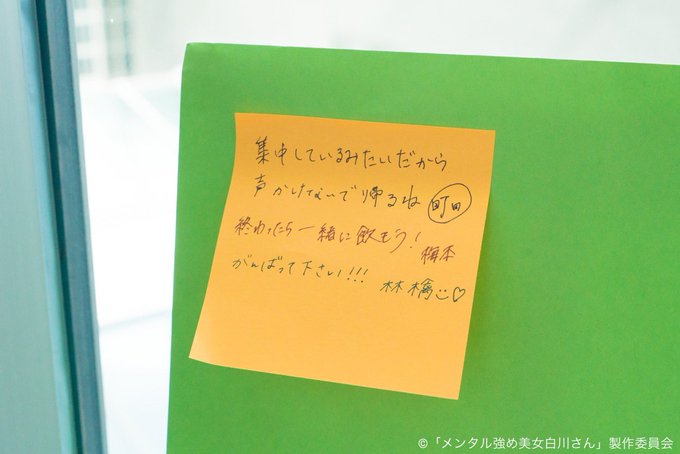 集中しているみたいだから
声かけないで帰るね 町田
終わったら一緒に飲もう! 梅本
がんばって下さい!!! 林檎
©「メンタル強め美女白川さん」製作委員会